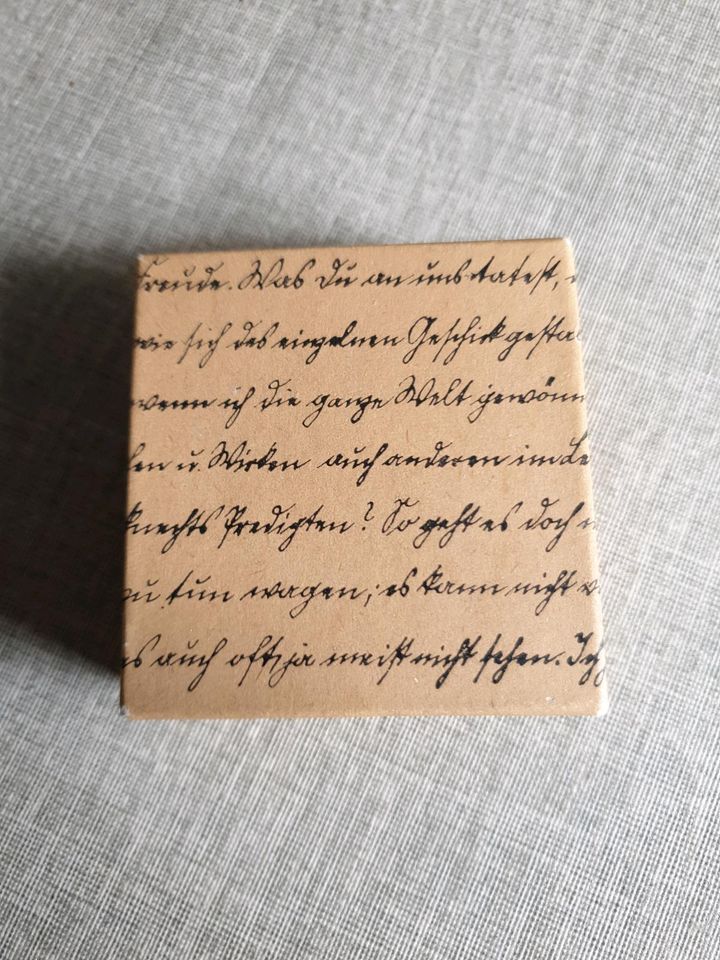 Freude. Was Du an uns tatest,
wie sich des einzelnen Geschick gestal
wenn ich die ganze Welt gewönn
en u. Wirken auch anderen im Le
knechts Predigten? So geht es doch
zu tun wagen; es kann nicht
es auch oft, ja meist nicht sehen. Ich